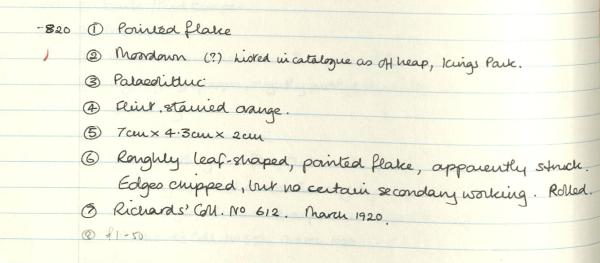 -820 ① Pointed flake
② Moordown (?) Listed in catalogue as off heap, Kings Park.
③ Palaeolithic
④ Flint. stained orange.
⑤ 7cm x 4.3cm x 2cm
⑥ Roughly leaf-shaped, pointed flake, apparently struck.
Edges chipped, but no certain secondary working. Rolled.
⑦ Richards' Coll. No 612. March 1920.
⑧ £1-50